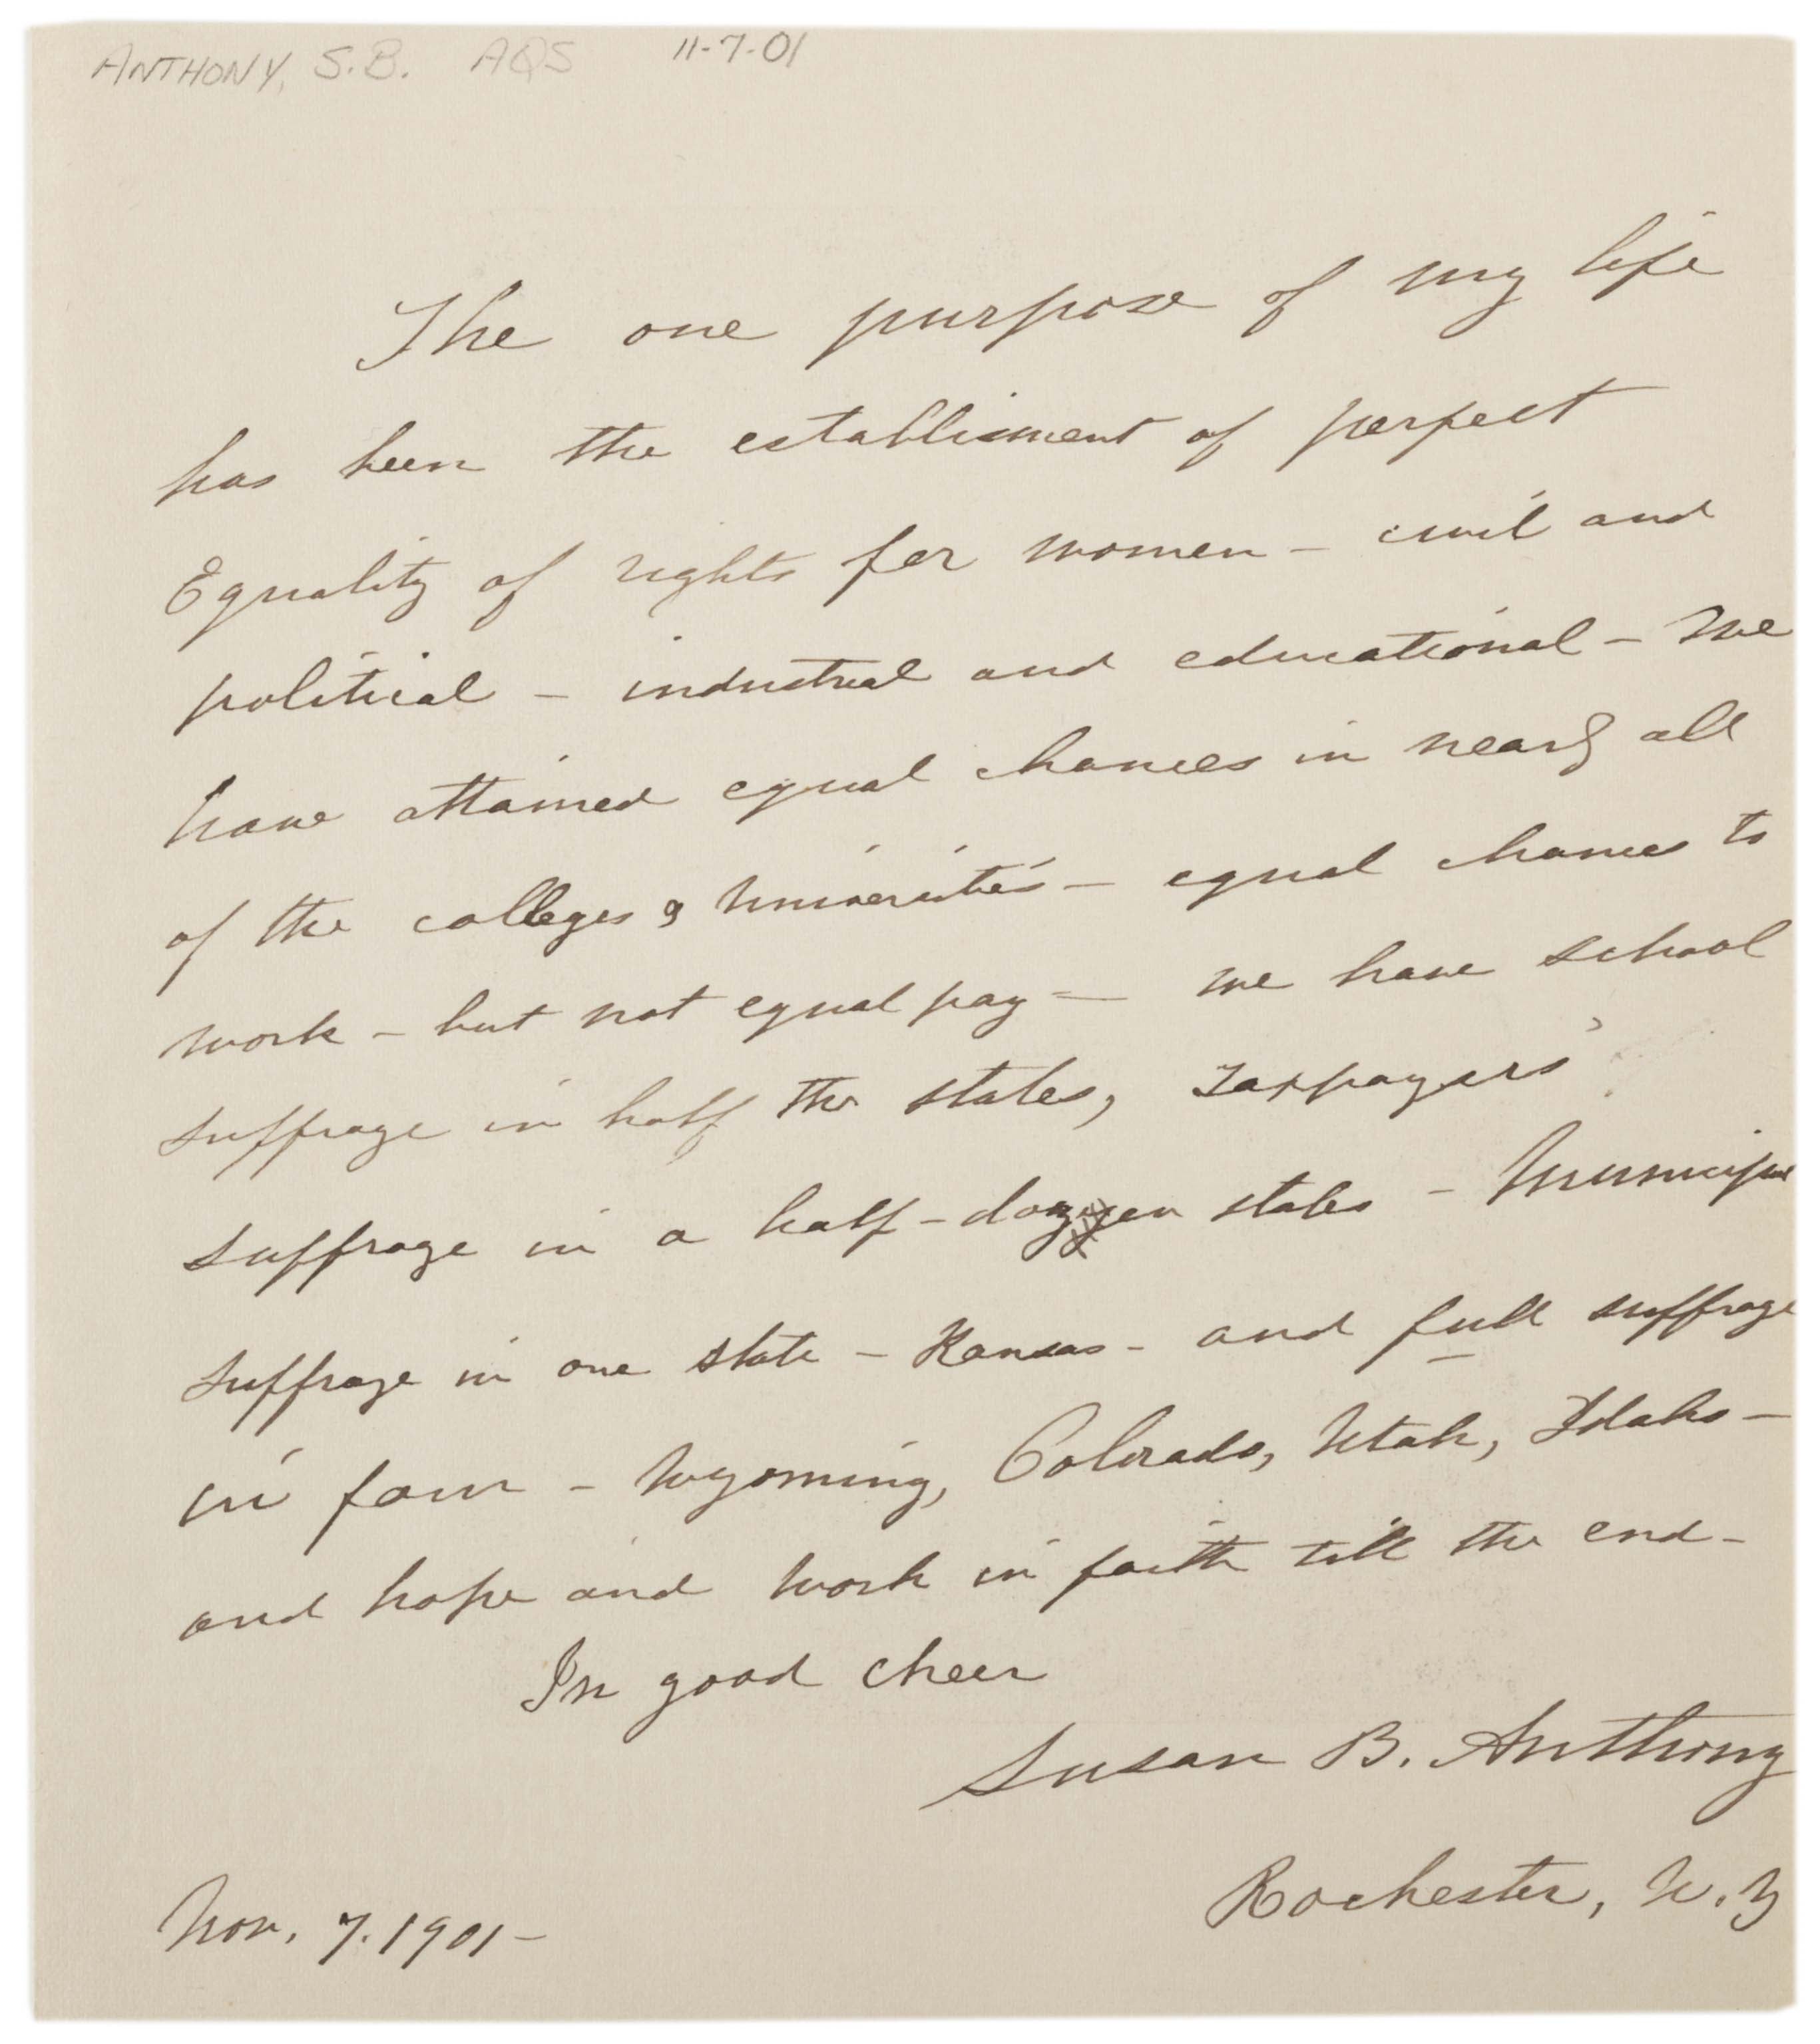 ANTHONY, S.B. AQS 11-7-01
The one purpose of my life
has been the establisment of perfect
Equality of rights for women - civil and
political - industrial and educational - We
have attained equal chances in nearly all
of the colleges & Universities - equal chances to
work - but not equal pay - we have school
suffrage in half the states, taxpayers'
suffrage in a half-dozen states - Municipal
suffrage in one state - Kansas - and full suffrage
in four - Wyoming, Colorado, Utah, Idaho -
and hope and work in faith till the end -
In good cheer
Susan B. Anthony
Rochester, N.Y
Nov. 7. 1901 -